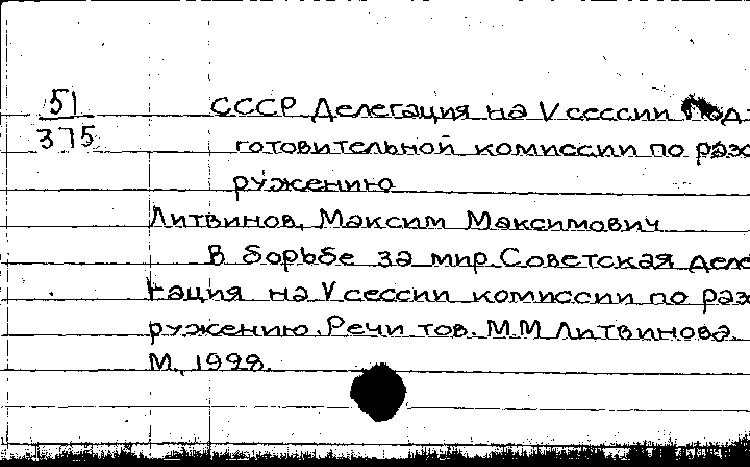 51
375
СССР Делегация на V сессии Под
готовительной комиссии по раз
ружению
Литвинов, Максим Максимович
В борьбе за мир. Советская деле
гация на V сессии комиссии по раз
ружению. Речи тов. М.М Литвинова.
М., 1928.